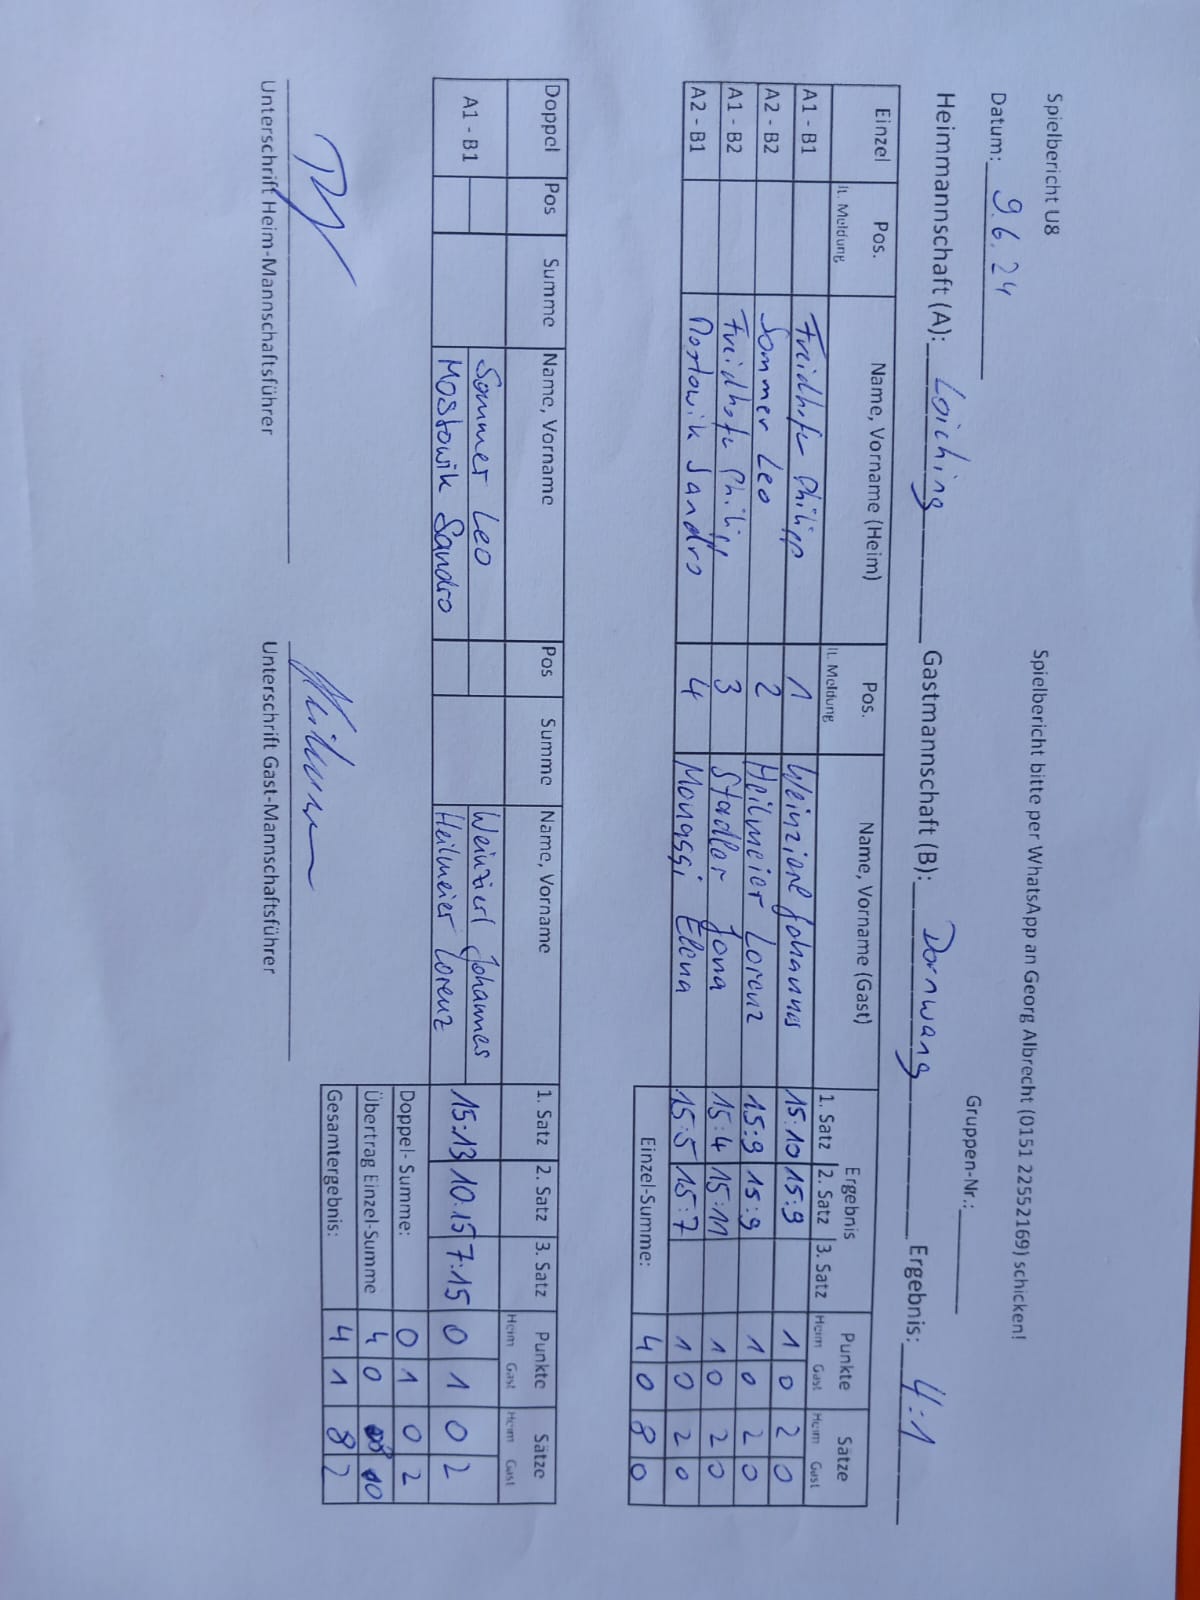 Spielbericht U8
Spielbericht bitte per WhatsApp an Georg Albrecht (0151 22552169) schicken!
Datum: 9.6.24
Gruppen-Nr.:
Heimmannschaft (A): Loiching Gastmannschaft (B): Dornwang Ergebnis: 4:1
Einzel Pos. Name, Vorname (Heim) Pos. Name, Vorname (Gast) Ergebnis Punkte Sätze
lt. Meldung lt. Meldung 1. Satz 2. Satz 3. Satz Heim Gast Heim Gast
A1 - B1 Philipp 1 Weinzierl Johannes 15:10 15:9 1 0 2 0
A2 - B2 Sommer Leo 2 Heilmeier Lorenz 15:9 15:9 1 0 2 0
A1 - B2 Philipp 3 Stadler Jona 15:4 15:11 1 0 2 0
A2 - B1 Mostowik Sandro 4 Elena 15:5 15:7 1 0 2 0
Einzel-Summe: 4 0 8 0
Doppel Pos Summe Name, Vorname Pos Summe Name, Vorname 1. Satz 2. Satz 3. Satz Punkte Sätze
Heim Gast Heim Gast
A1 - B1 Sommer Leo Weinzierl Johannes 15:13 10:15 7:15 0 1 0 2
Mostowik Sandro Heilmeier Lorenz
Doppel- Summe: 0 1 0 2
Übertrag Einzel-Summe 4 0 8 0
Gesamtergebnis: 4 1 8 2
Unterschrift Heim-Mannschaftsführer Unterschrift Gast-Mannschaftsführer